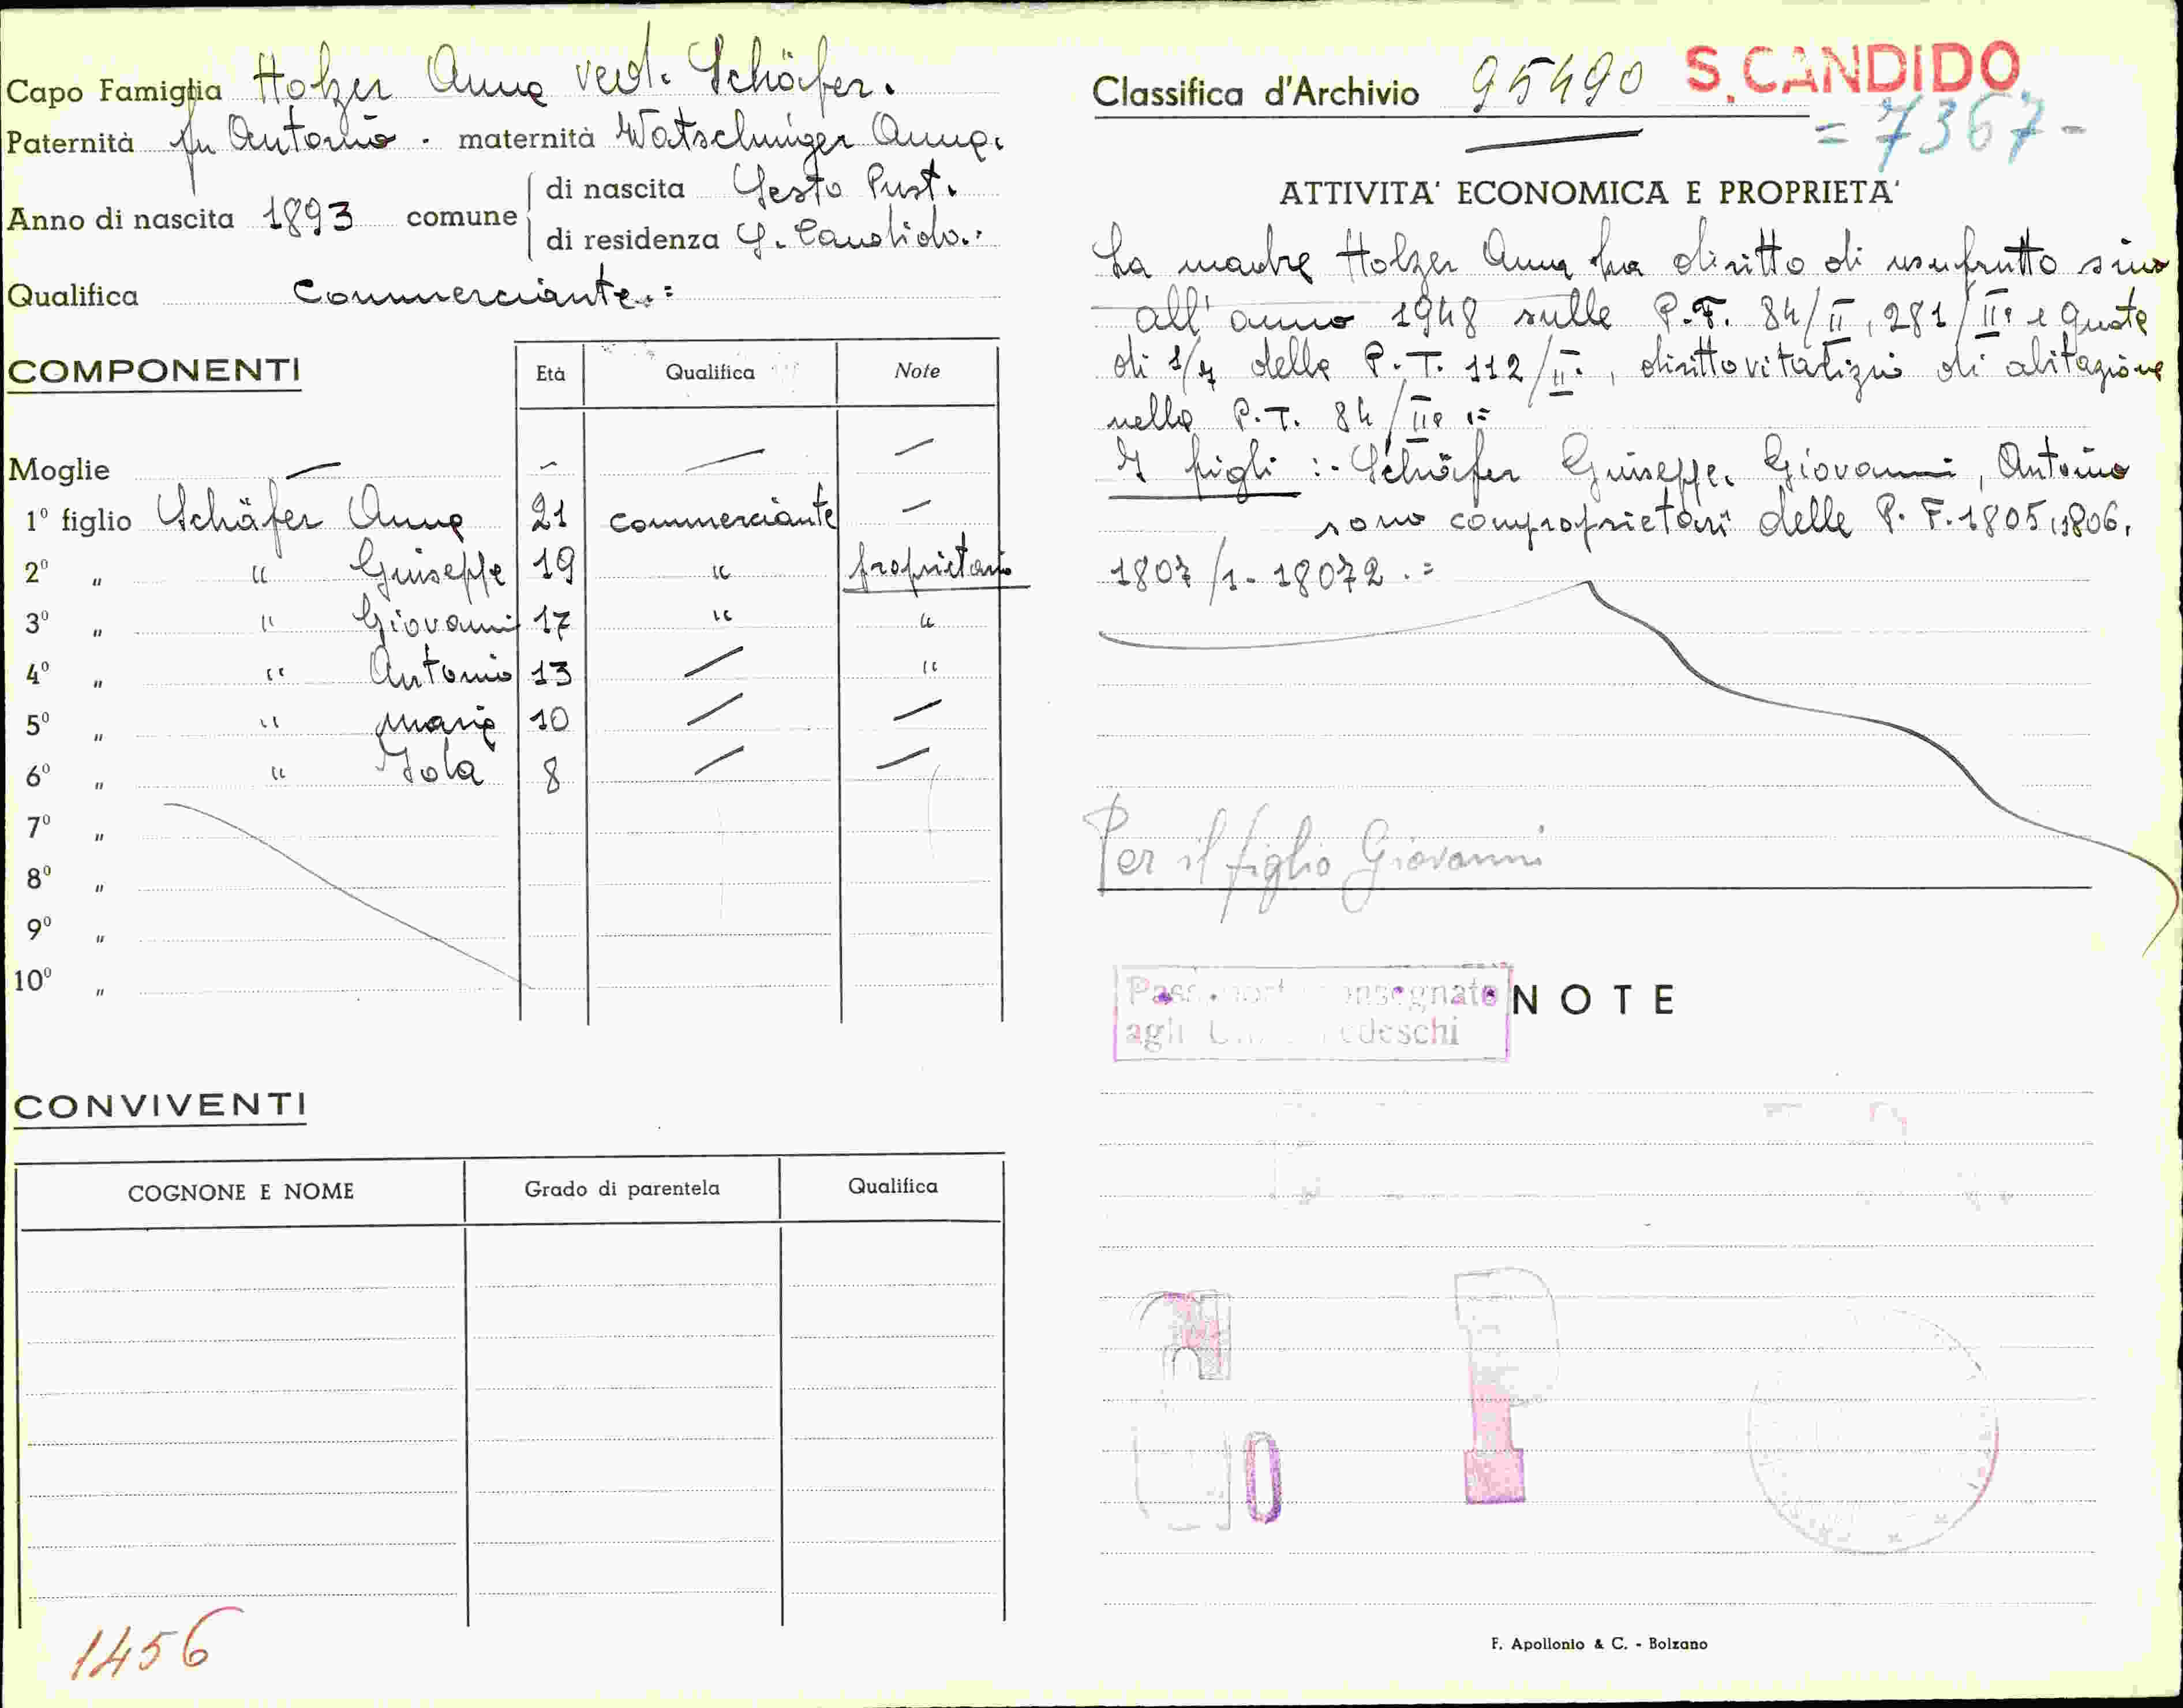 Capo Famiglia Holzer Anna ved. Schäfer.
Paternità fu Antonio. maternità Watschinger Anna.
Anno di nascita 1893 comune
di nascita Sesto Pust.
di residenza S. Candido.:
Qualifica Commerciante.=
COMPONENTI Età Qualifica Note
Moglie — — — —
1° figlio Schäfer Anna 21 commerciante —
2° " " Giuseppe 19 " proprietario
3° " " Giovanni 17 " "
4° " " Antonio 13 — "
5° " " Maria 10 — —
6° " " Iola 8 — —
7° "
8° "
9° "
10° "
CONVIVENTI
COGNONE E NOME Grado di parentela Qualifica
1456
Classifica d'Archivio 95490 S.CANDIDO
=7367-
ATTIVITA' ECONOMICA E PROPRIETA'
La madre Holzer Anna ha diritto di usufrutto sino
all' anno 1948 sulle P.F. 84/II, 281/II e quota
di 1/4 della P.T. 112/II., diritto vitalizio di abitazione
nella P.T. 84/II .=
I figli :- Schäfer Giuseppe. Giovanni, Antonio
sono comproprietari delle P.F. 1805, 1806,
1807/1- 18072 .=
Per il figlio Giovanni
NOTE
F. Apollonio & C. - Bolzano